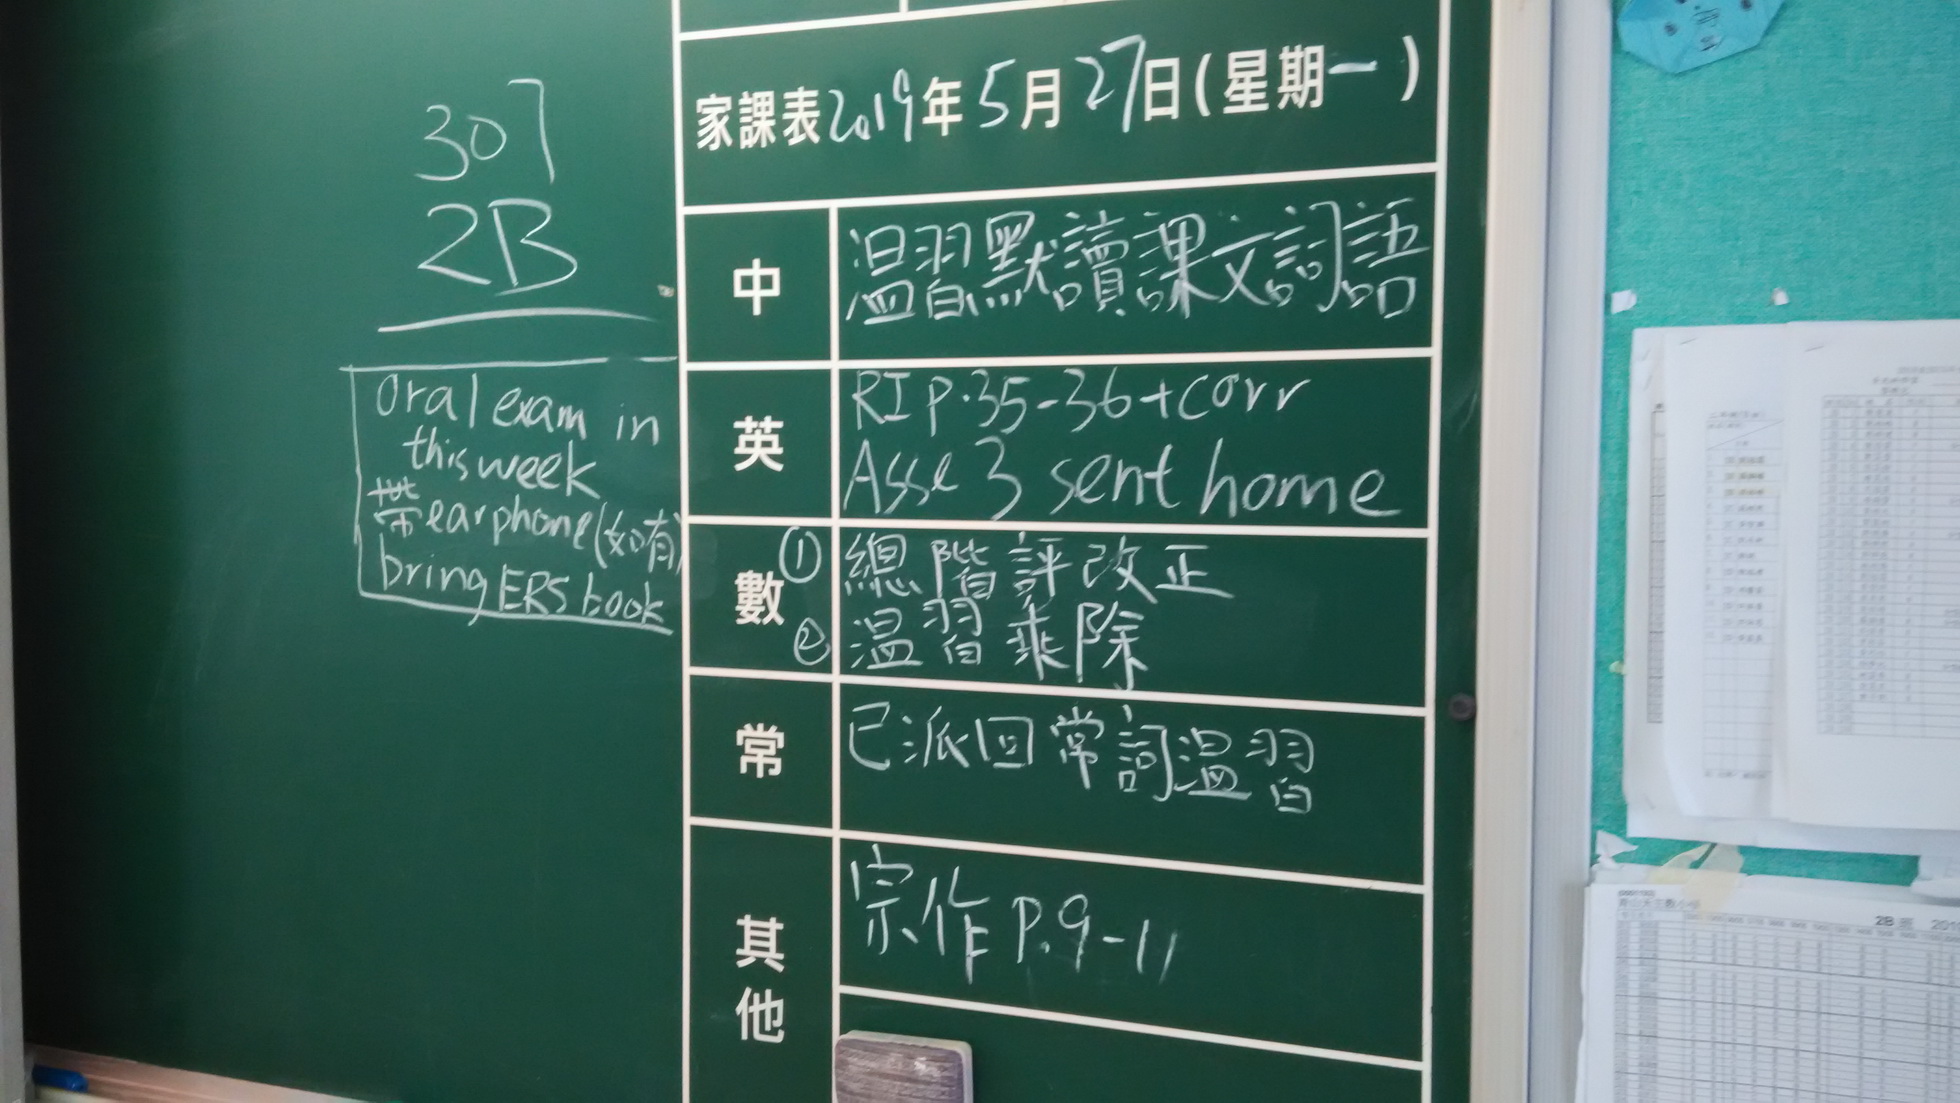 307
2B
oral exam in
this week
帶earphone(如有)
bring ERS book
家課表2019年5月27日(星期一)
中
温習默讀課文詞語
英
RI p.35-36+corr
Asse 3 sent home
數
① 總階評改正
② 温習乘除
常
已派回常詞温習
其他
宗作 P.9-11
2B 班 201